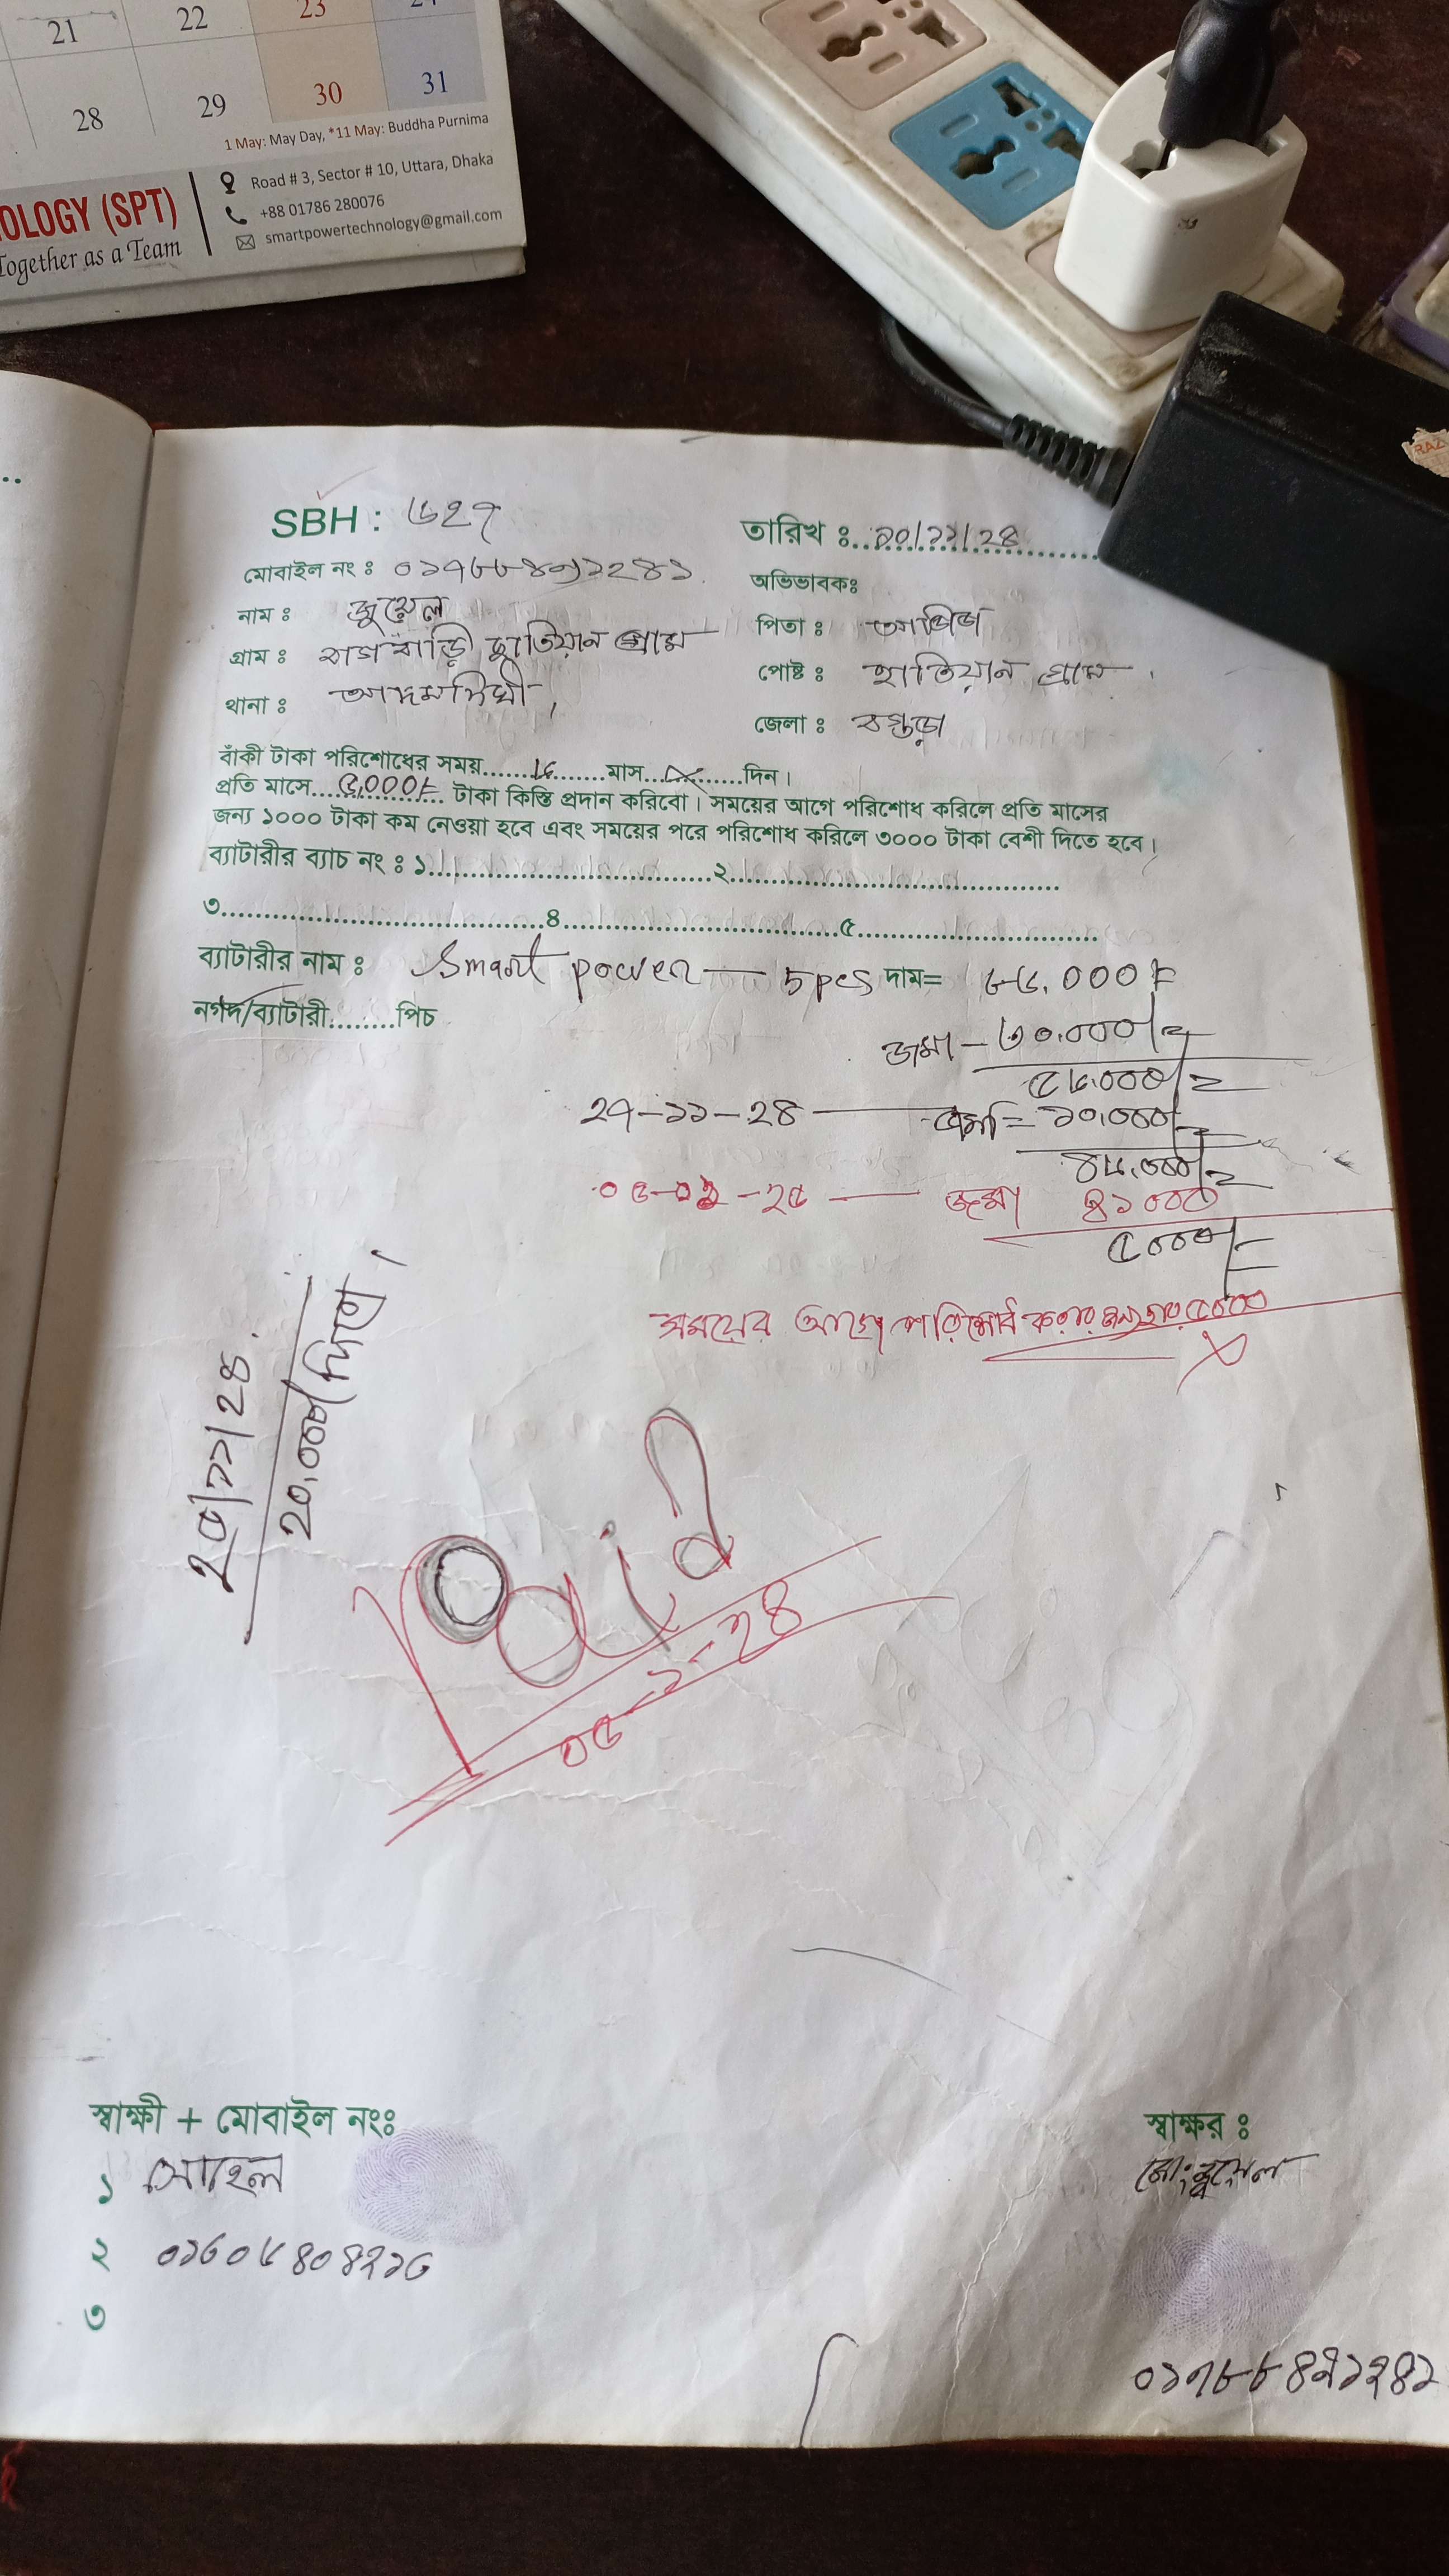 21 22 23 24
28 29 30 31
1 May: May Day, *11 May: Buddha Purnima
OLOGY (SPT)
Together as a Team
Road # 3, Sector # 10, Uttara, Dhaka
+88 01786 280076
smartpowertechnology@gmail.com
SBH : ৬২৭
তারিখ ঃ ১০/১১/২৪
মোবাইল নং ঃ
অভিভাবকঃ
নাম ঃ জুয়েল
পিতা ঃ
গ্রাম ঃ বাগবাড়ী ছাতিয়ান গ্রাম
পোষ্ট ঃ ছাতিয়ান গ্রাম
থানা ঃ আদমদিঘী,
জেলা ঃ বগুড়া
বাঁকী টাকা পরিশোধের সময়........৮........মাস...×......দিন।
প্রতি মাসে....৫,০০০/=.... টাকা কিস্তি প্রদান করিবো। সময়ের আগে পরিশোধ করিলে প্রতি মাসের
জন্য ১০০০ টাকা কম নেওয়া হবে এবং সময়ের পরে পরিশোধ করিলে ৩০০০ টাকা বেশী দিতে হবে।
ব্যাটারীর ব্যাচ নং ঃ ১....................২....................
৩....................৪....................৫....................
ব্যাটারীর নাম ঃ Smart power — 5pcs দাম= ৮৬,০০০/=
নগদ/ব্যাটারী........পিচ
জমা – ৩০,০০০/=
৫৬,০০০/=
২৭-১১-২৪ — জমা = ১০,০০০/=
৪৬,০০০/=
০৫-০১-২৫ — জমা ৪১০০০
৫০০০/=
সময়ের আগে পরিশোধ করার জন্য ছাড় ৫০০০
২৫/১১/২৪.
২০,০০০/ দিবে,
Paid
০৫-১-২৪
স্বাক্ষী + মোবাইল নংঃ
স্বাক্ষর ঃ
১ সোহেল
মোঃ জুয়েল
২
৩
০১৭৮৮৪২১২৪১